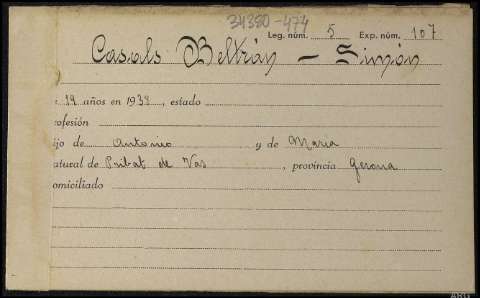 34380-474
Leg. núm. 5 Exp. núm. 107
Casals Beltrán — Simón
19 años en 1938, estado
rofesión
ijo de Antonio y de Maria
atural de Pubat de Vas, provincia Gerona
omiciliado